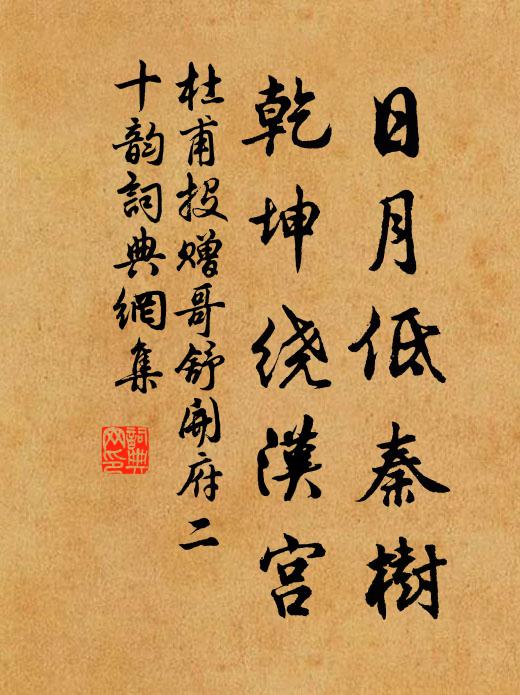 日月低秦樹
乾坤绕漢宫
杜甫投赠哥舒開府二
十韵詞典網集
詞典网印